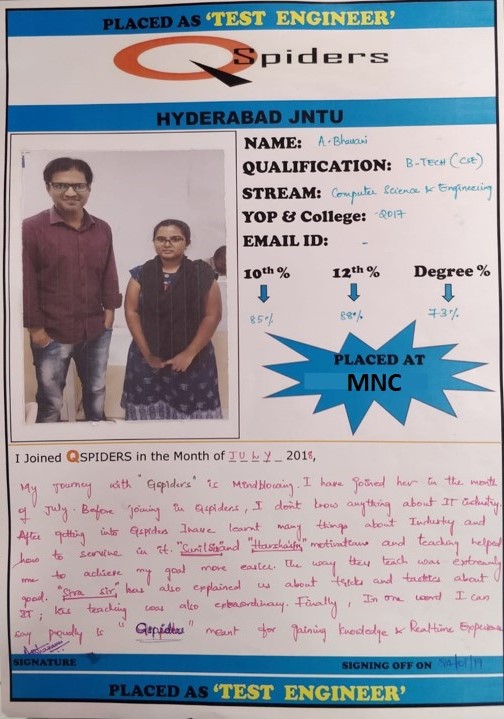 PLACED AS 'TEST ENGINEER'
QSpiders
HYDERABAD JNTU
NAME: A. Bhavani
QUALIFICATION: B-TECH (CSE)
STREAM: Computer Science & Engineering
YOP & College: 2017
EMAIL ID: -
10th % 12th % Degree %
85% 88% 73%
PLACED AT
MNC
I Joined QSPIDERS in the Month of JULY 2018,
My journey with "Qspiders" is Mindblowing. I have joined her in the month
of July. Before joining in Qspiders, I don't know anything about IT industry.
After getting into Qspiders I have learnt many things about Industry and
how to survive in it. "Sunil sir" and "Harsha sir" motivations and teaching helped
me to achieve my goal more easier. The way they teach was extremely
good. "Siva sir" has also explained us about tricks and tactics about
IT; his teaching was also extraordinary. Finally, In one word I can
say proudly is "Qspiders" meant for gaining knowledge & Realtime Experience
SIGNATURE SIGNING OFF ON
PLACED AS 'TEST ENGINEER'